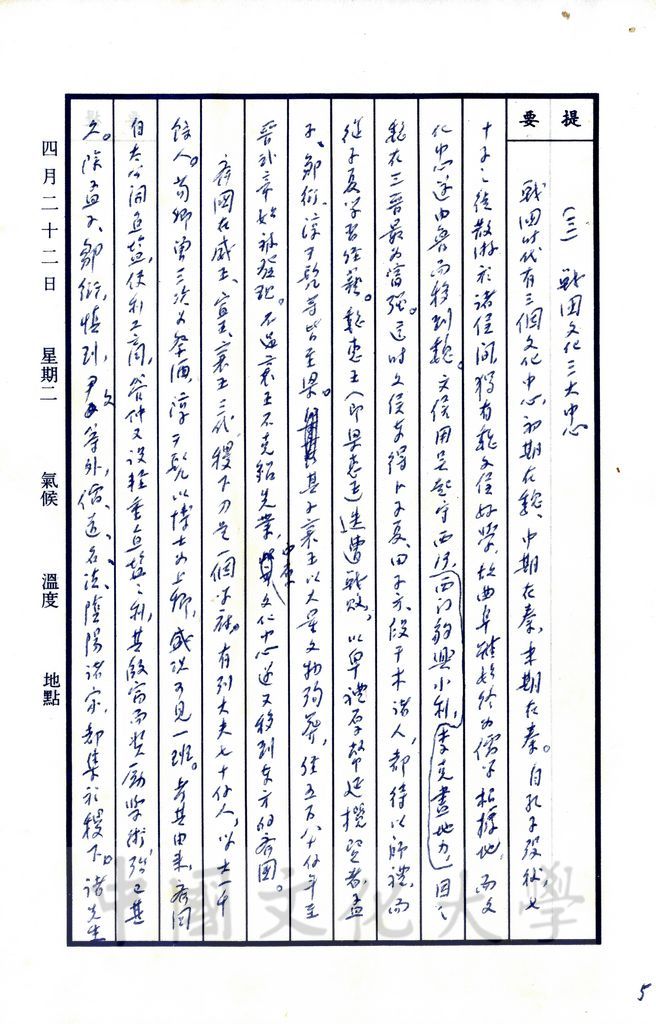 提要
(三) 戰国文化三大中心
戰国时代有三個文化中心,初期在魏、中期在秦,末期在秦。自孔子歿後,七
十子之徒散游於諸侯间,獨有魏文侯好學,故曲阜雖始終为儒家根據地,而文
化中心遂由魯而移到魏。文侯用吳起守西河,西门豹興水利,李克盡地力,因之
魏在三晉最为富强。這时文侯安得卜子夏、田子方、段干木諸人,都待以師禮,而
從子夏学習經藝。魏惠王(即梁惠王)迭遭戰敗,以卑禮厚幣延攬賢者,孟
子、鄒衍、淳于髡等皆至梁。其子襄王以大量文物殉葬,經五百八十仔年至
晉武帝始被發現。不过襄王不克紹先業,中原文化中心遂又移到东方的齊国。
齊国在威王、宣王、襄王三代,稷下乃是一個学府。有列大夫七十仔人,学士一千
餘人。荀卿曾三次为祭酒,淳于髡以博士为上卿,盛況可見一班。考其由来,齊国
自太公闻魚鹽,使利工商,管仲又设輕重魚鹽之利,其殷富而奖励学術殆已甚
久。除孟子、鄒衍、慎到、尹文等外,儒、道、名、法、陰陽諸家,都集於稷下,諸先生
四月二十二日 星期二 氣候 溫度 地點
中國文化大學
5